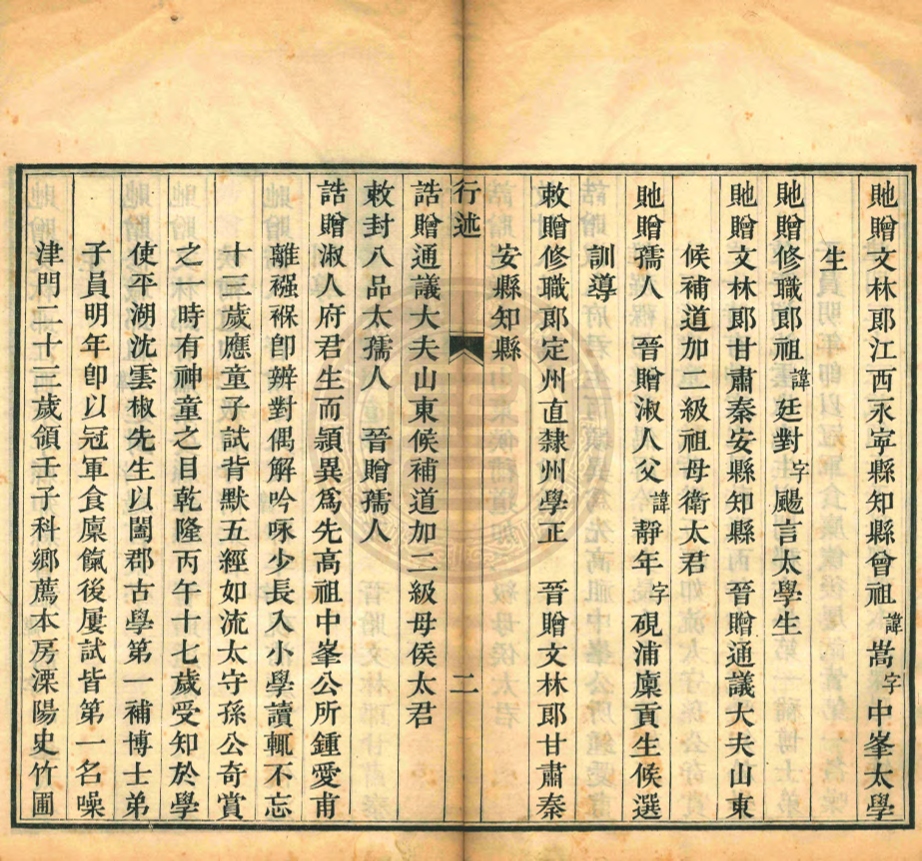 貤贈文林郎江西永寜縣知縣曾祖諱嵩字中峯太學
生
貤贈修職郎祖諱廷對字颺言太學生
貤贈文林郎甘肅秦安縣知縣　晉贈通議大夫山東
候補道加二級祖母衛太君
貤贈孺人　晉贈淑人父諱靜年字硯浦廩貢生候選
訓導
敕贈修職郎定州直隸州學正　晉贈文林郎甘肅秦
安縣知縣
行述　二
誥贈通議大夫山東候補道加二級母侯太君
敕封八品太孺人　晉贈孺人
誥贈淑人府君生而頴異爲先高祖中峯公所鍾愛甫
離襁褓卽辨對偶解吟咏少長入小學讀輒不忘
十三歲應童子試背默五經如流太守孫公奇賞
之一時有神童之目乾隆丙午十七歲受知於學
使平湖沈雲椒先生以闔郡古學第一補博士弟
子員明年卽以冠軍食廩餼後屢試皆第一名噪
津門二十三歲領壬子科鄉薦本房溧陽史竹圃